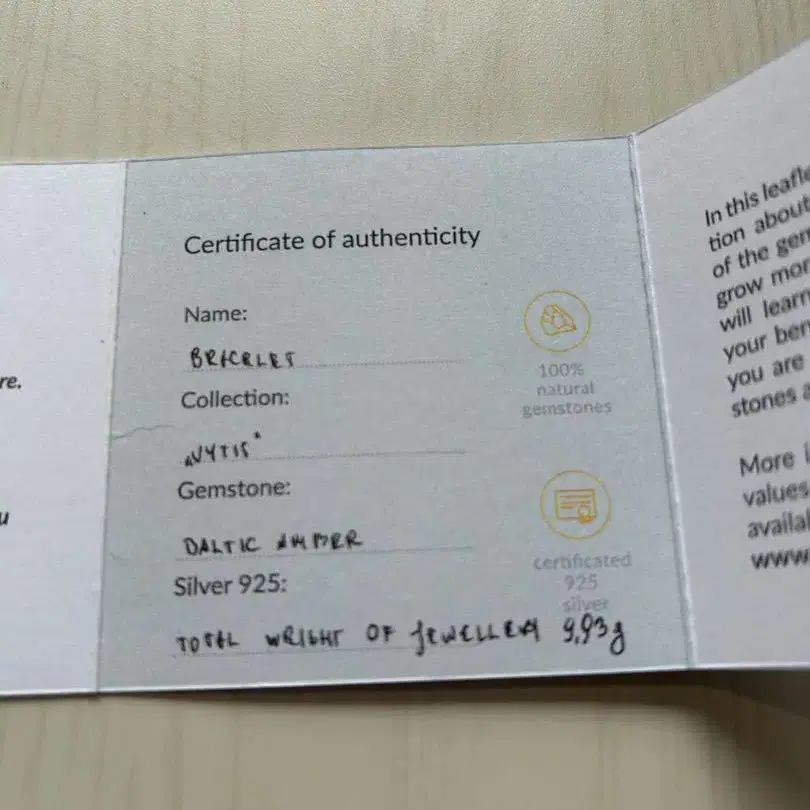 re.
u
Certificate of authenticity
Name:
BRACELET
Collection:
„VYTIS"
Gemstone:
BALTIC AMBER
Silver 925:
TOTAL WEIGHT OF JEWELLERY 9,93g
100%
natural
gemstones
certificated
925
silver
In this leafle
tion about
of the gem
grow mor
will learn
your ben
you are
stones a
More i
values
availal
www